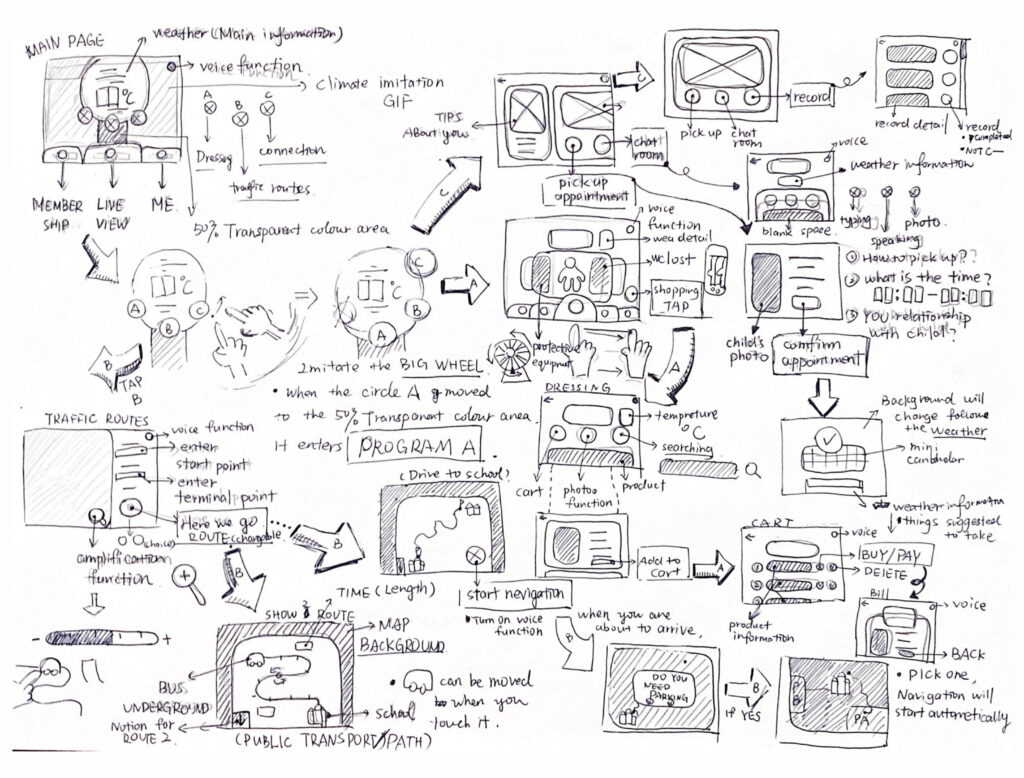 MAIN PAGE
weather (Main information)
voice function
climate imitation
GIF
A
B
C
°C
Dressing
traffic routes.
connection
MEMBER
SHIP
LIVE
VIEW
ME.
50% Transparent colour area
TIPS
ABout you
C
pick up
appointment
chat
room
C
pick up
chat
room
record
record detail
record
completed
NOT C—
voice
weather information
blank space.
typing
speaking
photo.
① How to pick up??
② what is the time?
00:00-00:00
③ YOU relationship
with child?
child's
photo
comfirm
appointment
°C
A
B
C
°C
C
B
A
A
Imitate the BIG WHEEL
• when the circle A is moved
to the 50% Transparent colour area
It enters PROGRAM A.
voice
function
wea detail
we lost
shopping
TAP
protective
equipment
A
DRESSING
tempreture
°C
searching
cart
photo
function
product
Add to
cart
A
B
TAP
B
TRAFFIC ROUTES
voice function
enter
start point
enter
terminal point
Here we go
ROUTE
B
B
amplification
function
- +
(Drive to school)
TIME (Length)
start nevigation
• Turn on voice
function
SHOW ROUTE
MAP
BACKGROUND
BUS
UNDERGROUND
Nution for
ROUTE 2.
school
(PUBLIC TRANSPORT/PATH)
• can be moved
when you
touch it.
B
when you are
about to arrive,
DO YOU
NEED
PARKING
B
if YES
(PA
• PICK one,
Navigation will
start autometically
Background will
change follow
the weather
mini
weather information
things suggested
to take
CART
voice
BUY/PAY
DELETE
product
information
Bill
voice
BACK